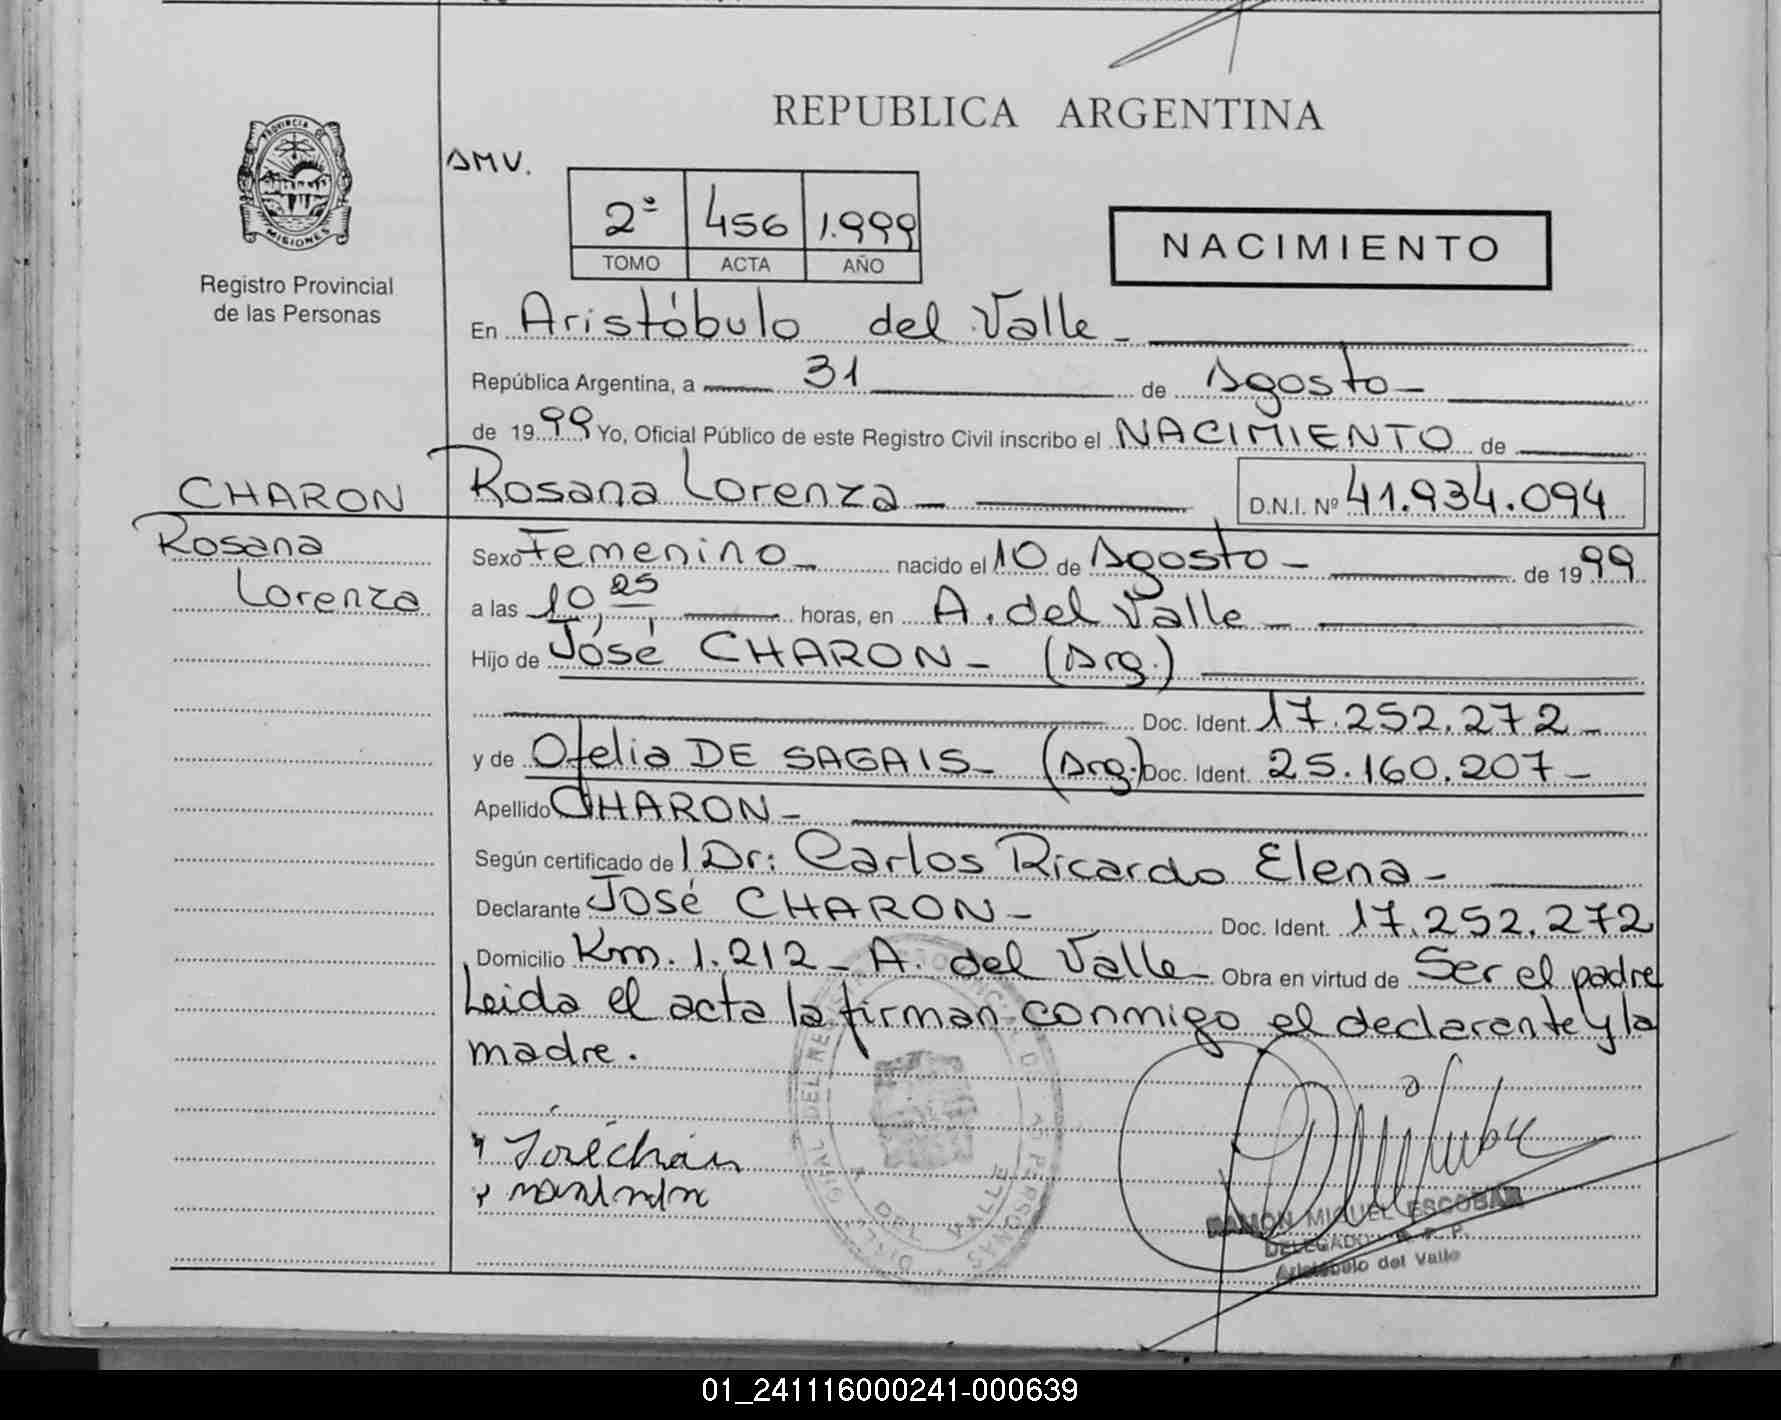 REPUBLICA ARGENTINA
PROVINCIA DE
MISIONES
Registro Provincial
de las Personas
AMV.
2º 456 1.999
TOMO ACTA AÑO
NACIMIENTO
En Aristóbulo del Valle -
República Argentina, a 31 de Agosto -
de 1999 Yo, Oficial Público de este Registro Civil inscribo el NACIMIENTO de
CHARON
Rosana
Lorenza
Rosana Lorenza - D.N.I. Nº 41.934.094
Sexo Femenino - nacido el 10 de Agosto - de 1999
a las 10,25 horas, en A. del Valle -
Hijo de José CHARON - (Arg.)
Doc. Ident. 17.252.272 -
y de Ofelia DE SAGAIS - (Arg.) Doc. Ident. 25.160.207 -
Apellido CHARON -
Según certificado de l Dr: Carlos Ricardo Elena -
Declarante José CHARON - Doc. Ident. 17.252.272
Domicilio Km. 1.212 - A. del Valle - Obra en virtud de Ser el padre
Leida el acta la firman conmigo el declarante y la
madre.
RAMON MIGUEL ESCOBAR
DELEGADO R. P. P.
Aristóbulo del Valle
01_241116000241-000639